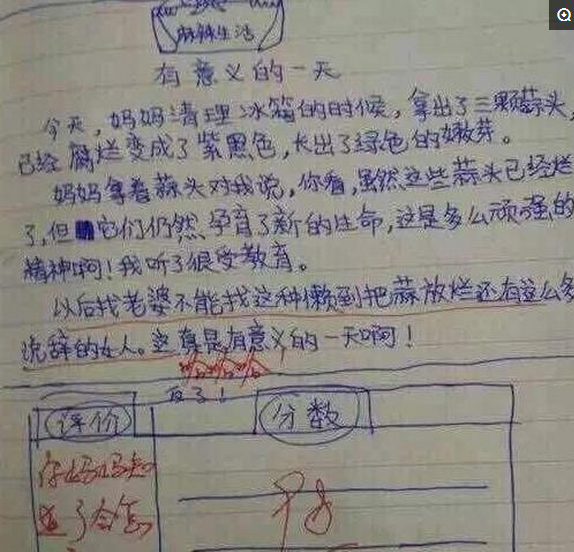 麻辣生活
有意义的一天
今天,妈妈清理冰箱的时候,拿出了三颗蒜头,
已经腐烂变成了紫黑色,长出了绿色的嫩芽。
妈妈拿着蒜头对我说,你看,虽然这些蒜头已经烂
了,但它们仍然孕育了新的生命,这是多么顽强的
精神啊!我听了很受教育。
以后找老婆不能找这种懒到把蒜放烂还有这么多
说辞的女人。这真是有意义的一天啊!
反了!
评价
分数
你妈妈知
道了会怎
98